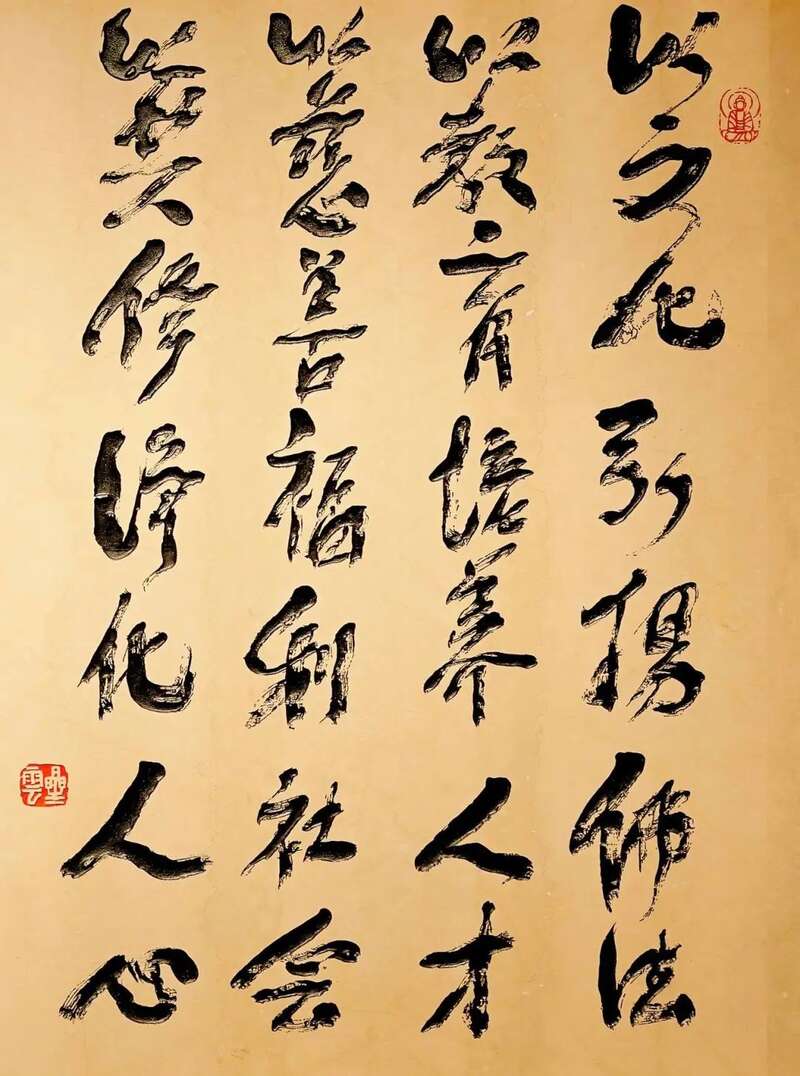 以文化弘揚佛法
以教育培养人才
以慈善福利社会
以共修淨化人心
星雲